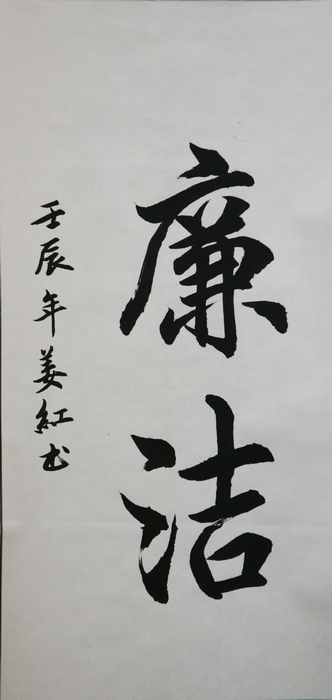 廉洁
壬辰年姜红书